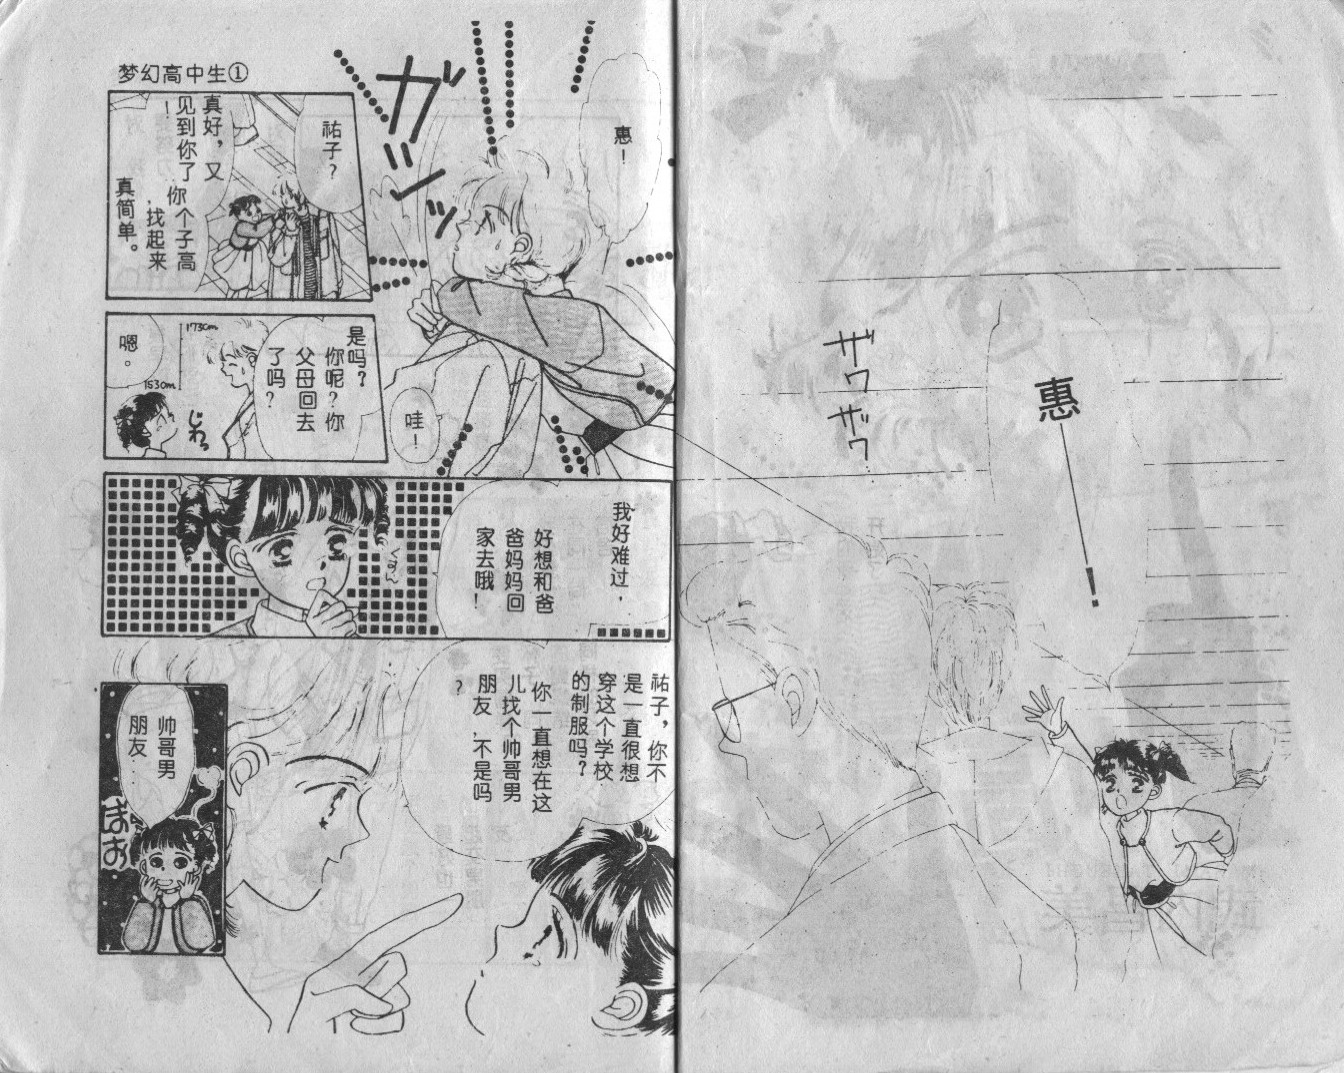 ザワ
ザワ
惠——！
梦幻高中生①
惠！
ガバッ
哇！
祐子？
真好，又
见到你了
！
你个子高
，找起来
真简单。
是吗？
你呢？你
父母回去
了吗？
173cm
153cm
じわっ
嗯。
我好难过，
好想和爸
爸妈妈回
家去哦！
くすん
祐子，你不
是一直很想
穿这个学校
的制服吗？
你一直想在这
儿找个帅哥男
朋友，不是吗
？
帅哥男
朋友
ほおぉ